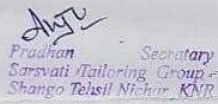 Pradhan Secratary
Sarsvati Tailoring Group -
Shango Tehsil Nichar, KNR